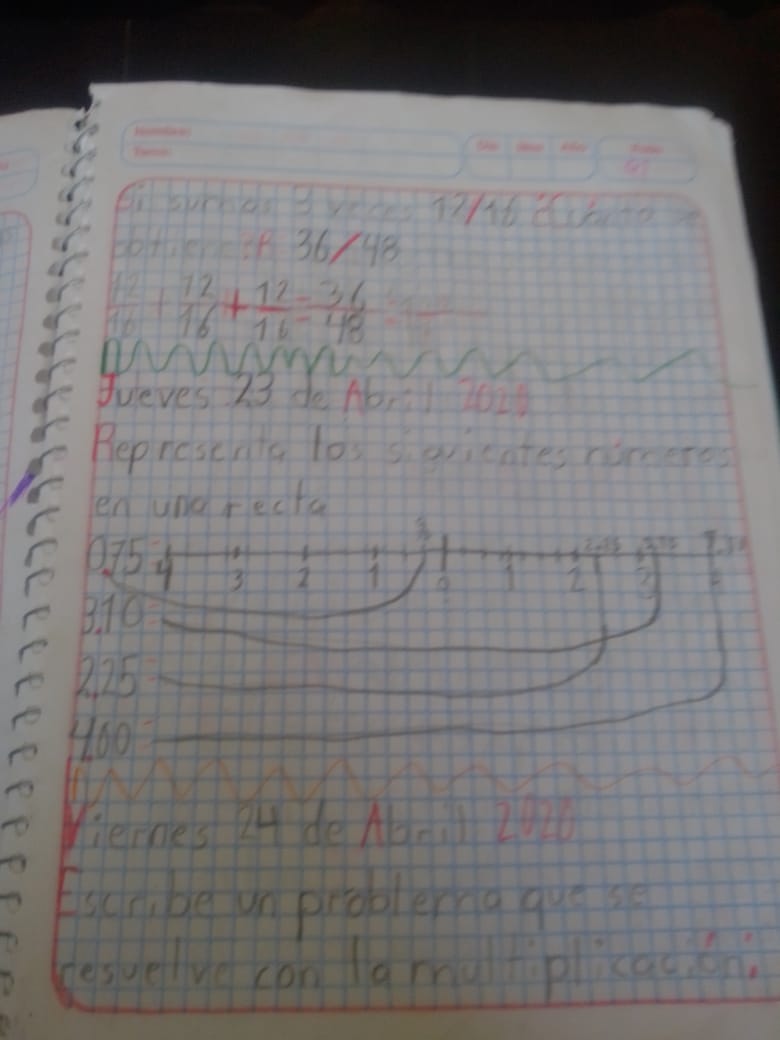 Nombre:
Tema:
Día Mes Año Folio
Si sumas 3 veces 12/16 ¿Cuánto se
obtiene R 36/48
12/16 + 12/16 + 12/16 = 36/48
Jueves 23 de Abril 2020
Representa los siguientes números
en una recta
0.75 4 3 2 1 0 1 2 3
3.10
2.25
4.00
Viernes 24 de Abril 2020
Escribe un problema que se
resuelve con la multiplicación: